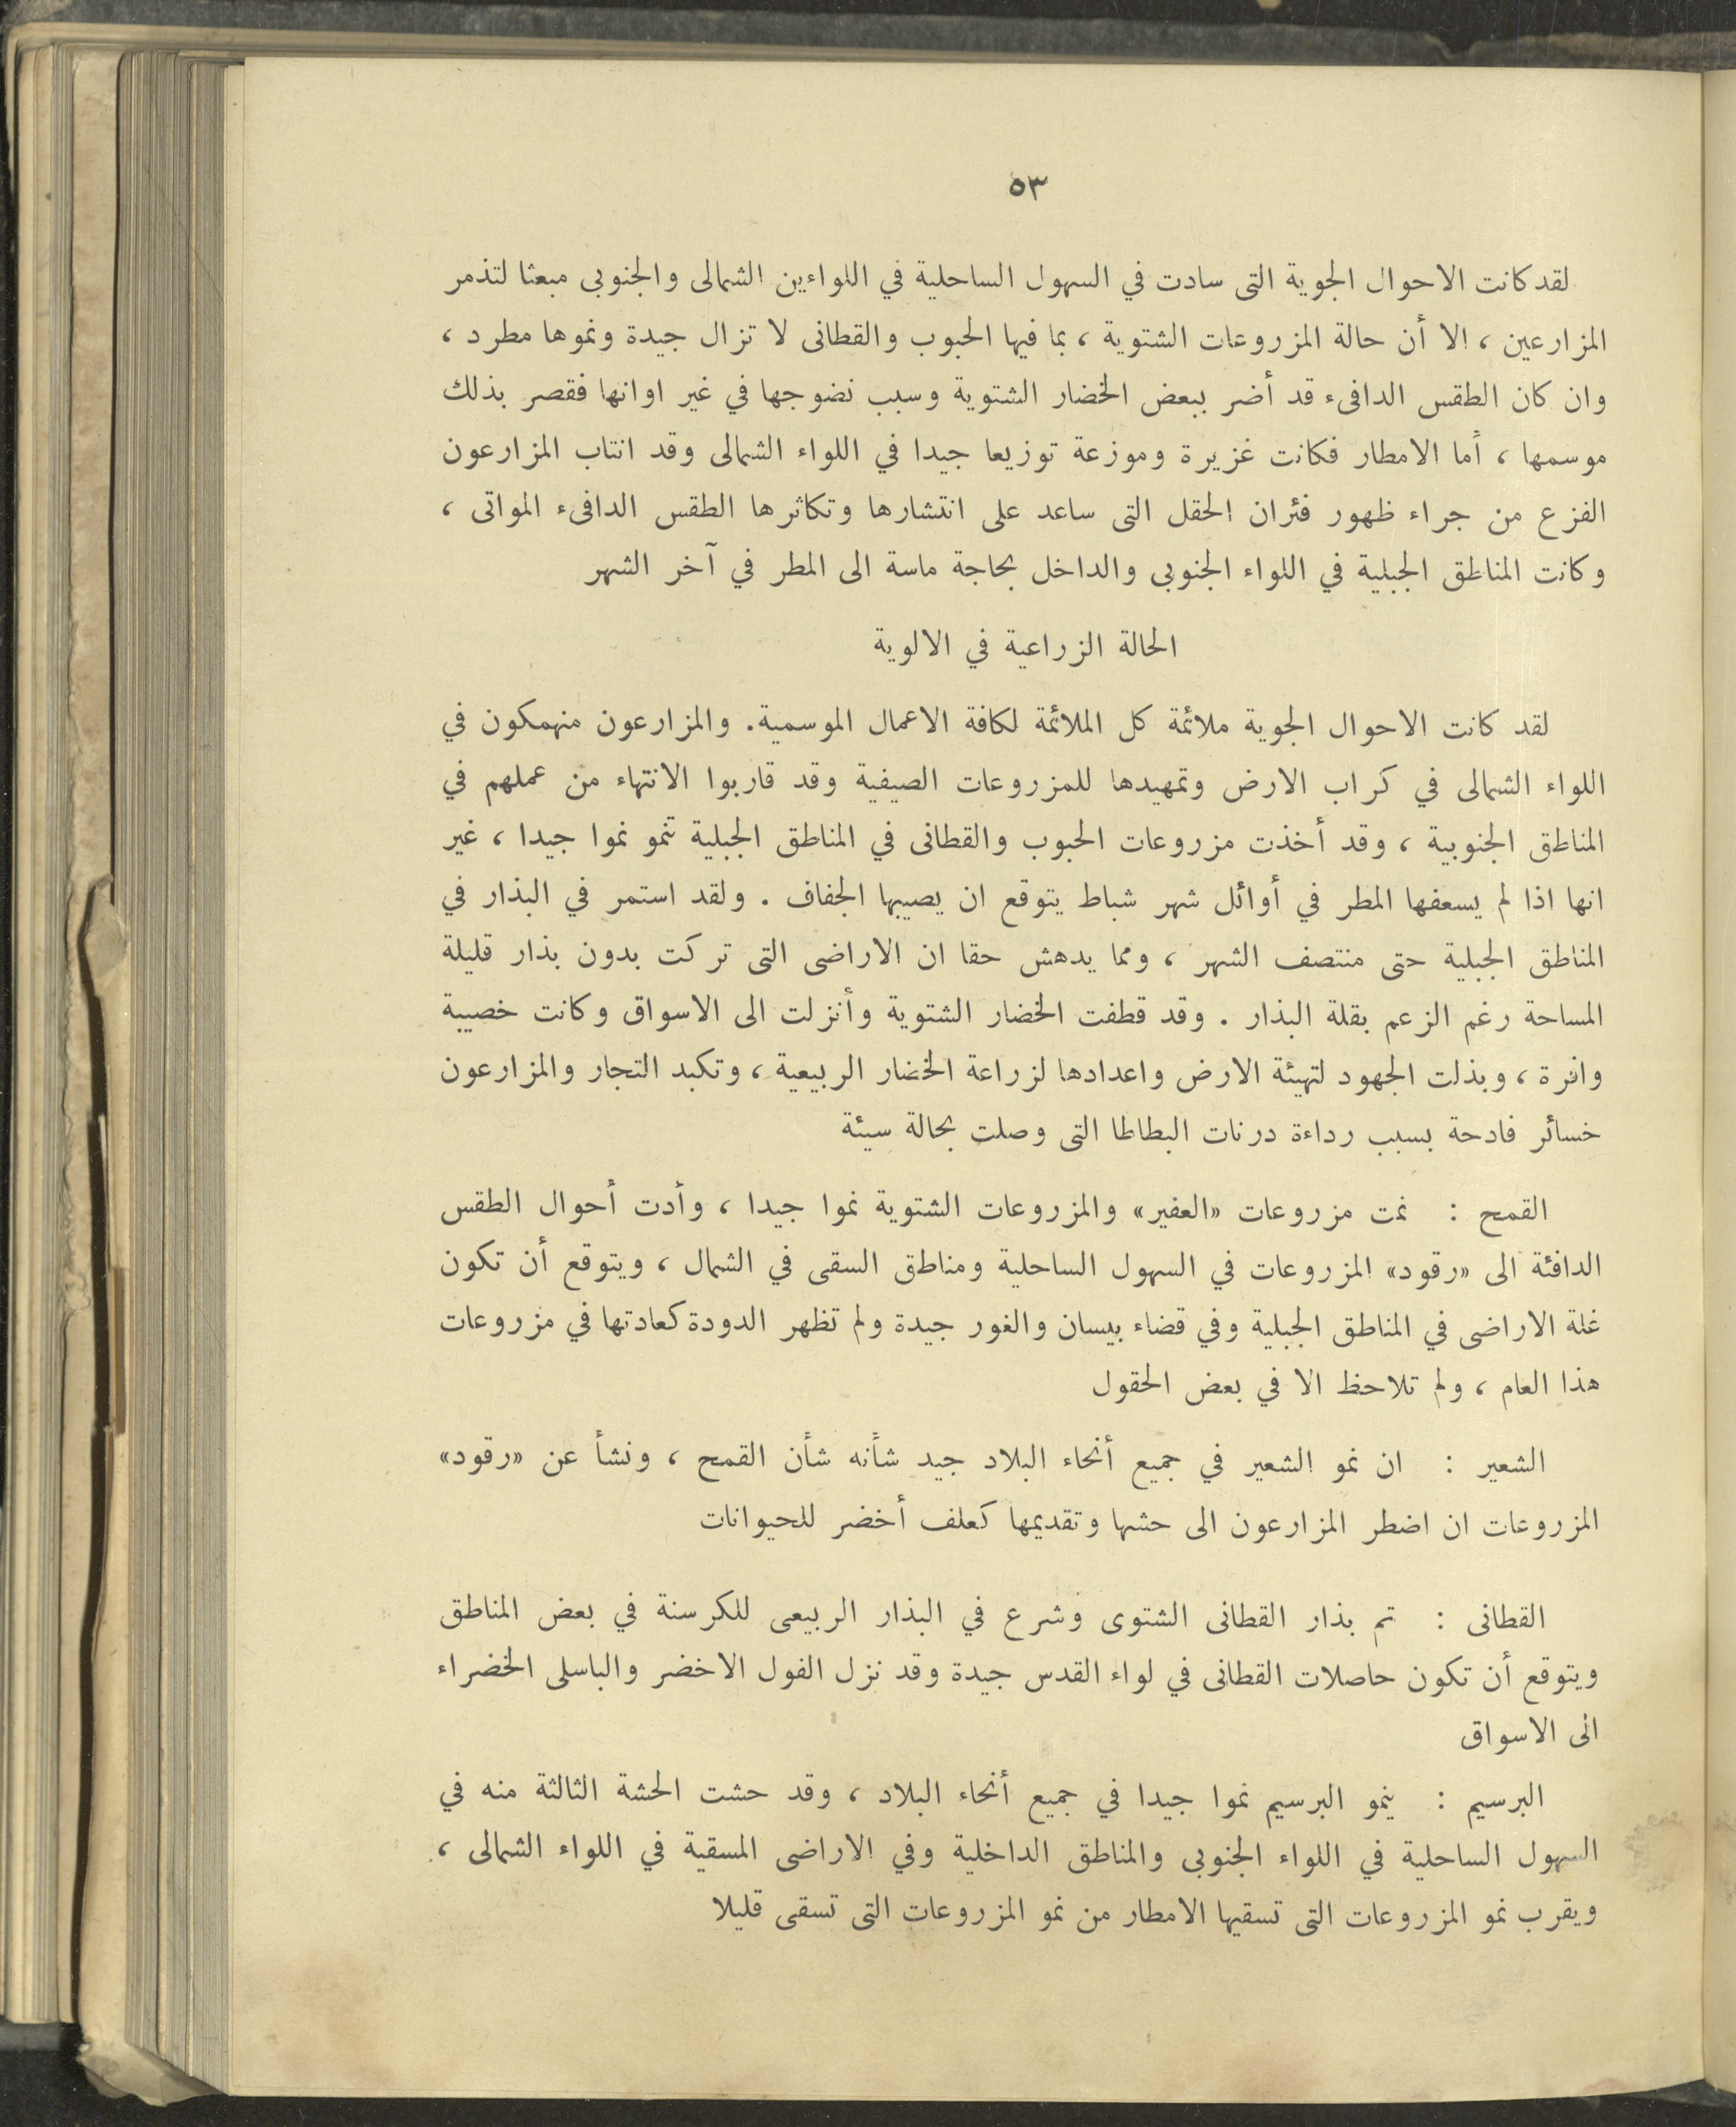 ٥٣
لقد كانت الاحوال الجوية التى سادت في السهول الساحلية في اللواءين الشمالى والجنوبى مبعثا لتذمر
المزارعين ، الا أن حالة المزروعات الشتوية ، بما فيها الحبوب والقطانى لا تزال جيدة ونموها مطرد ،
وان كان الطقس الدافىء قد أضر ببعض الخضار الشتوية وسبب نضوجها في غير اوانها فقصر بذلك
موسمها ، أما الامطار فكانت غزيرة وموزعة توزيعا جيدا في اللواء الشمالى وقد انتاب المزارعون
الفزع من جراء ظهور فئران الحقل التى ساعد على انتشارها وتكاثرها الطقس الدافىء المواتى ،
وكانت المناطق الجبلية في اللواء الجنوبى والداخل بحاجة ماسة الى المطر في آخر الشهر
الحالة الزراعية في الالوية
لقد كانت الاحوال الجوية ملائمة كل الملائمة لكافة الاعمال الموسمية. والمزارعون منهمكون في
اللواء الشمالى في كراب الارض وتمهيدها للمزروعات الصيفية وقد قاربوا الانتهاء من عملهم في
المناطق الجنوبية ، وقد أخذت مزروعات الحبوب والقطانى في المناطق الجبلية تنمو نموا جيدا ، غير
انها اذا لم يسعفها المطر في أوائل شهر شباط يتوقع ان يصيبها الجفاف . ولقد استمر في البذار في
المناطق الجبلية حتى منتصف الشهر ، ومما يدهش حقا ان الاراضى التى تركت بدون بذار قليلة
المساحة رغم الزعم بقلة البذار . وقد قطفت الخضار الشتوية وأنزلت الى الاسواق وكانت خصيبة
وافرة ، وبذلت الجهود لتهيئة الارض واعدادها لزراعة الخضار الربيعية ، وتكبد التجار والمزارعون
خسائر فادحة بسبب رداءة درنات البطاطا التى وصلت بحالة سيئة
القمح : نمت مزروعات «العفير» والمزروعات الشتوية نموا جيدا ، وأدت أحوال الطقس
الدافئة الى «رقود» المزروعات في السهول الساحلية ومناطق السقى في الشمال ، ويتوقع أن تكون
غلة الاراضى في المناطق الجبلية وفي قضاء بيسان والغور جيدة ولم تظهر الدودة كعادتها في مزروعات
هذا العام ، ولم تلاحظ الا في بعض الحقول
الشعير : ان نمو الشعير في جميع أنحاء البلاد جيد شأنه شأن القمح ، ونشأ عن «رقود»
المزروعات ان اضطر المزارعون الى حشها وتقديمها كعلف أخضر للحيوانات
القطانى : تم بذار القطانى الشتوى وشرع في البذار الربيعى للكرسنة في بعض المناطق
ويتوقع أن تكون حاصلات القطانى في لواء القدس جيدة وقد نزل الفول الاخضر والباسلى الخضراء
الى الاسواق
البرسيم : ينمو البرسيم نموا جيدا في جميع أنحاء البلاد ، وقد حشت الحشة الثالثة منه في
السهول الساحلية في اللواء الجنوبى والمناطق الداخلية وفي الاراضى المسقية في اللواء الشمالى ،
ويقرب نمو المزروعات التى تسقيها الامطار من نمو المزروعات التى تسقى قليلا